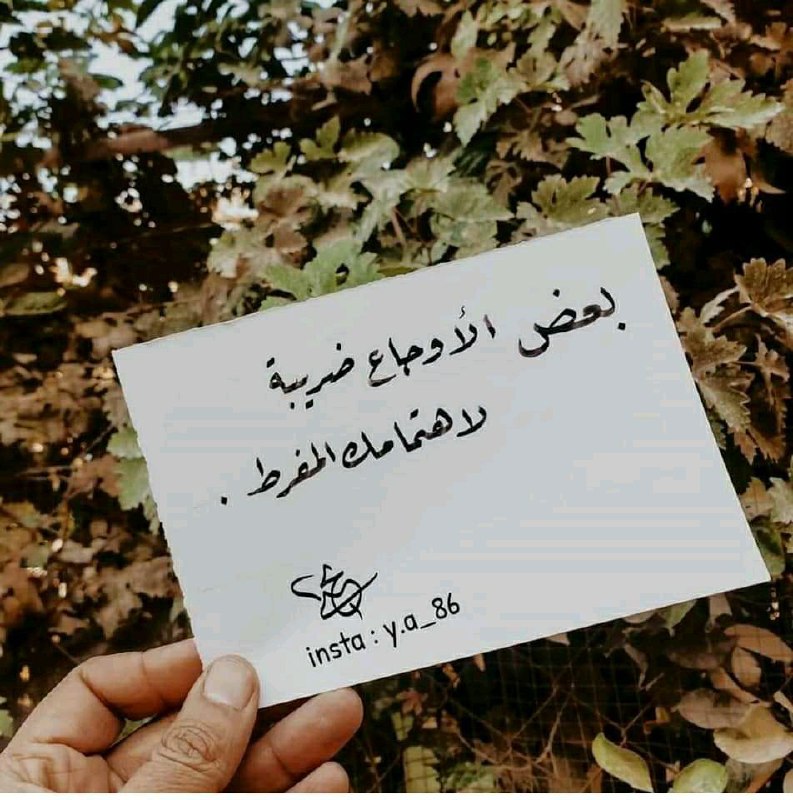 بعض الأوجاع ضريبة
لاهتمامك المفرط .
insta : y.a_86